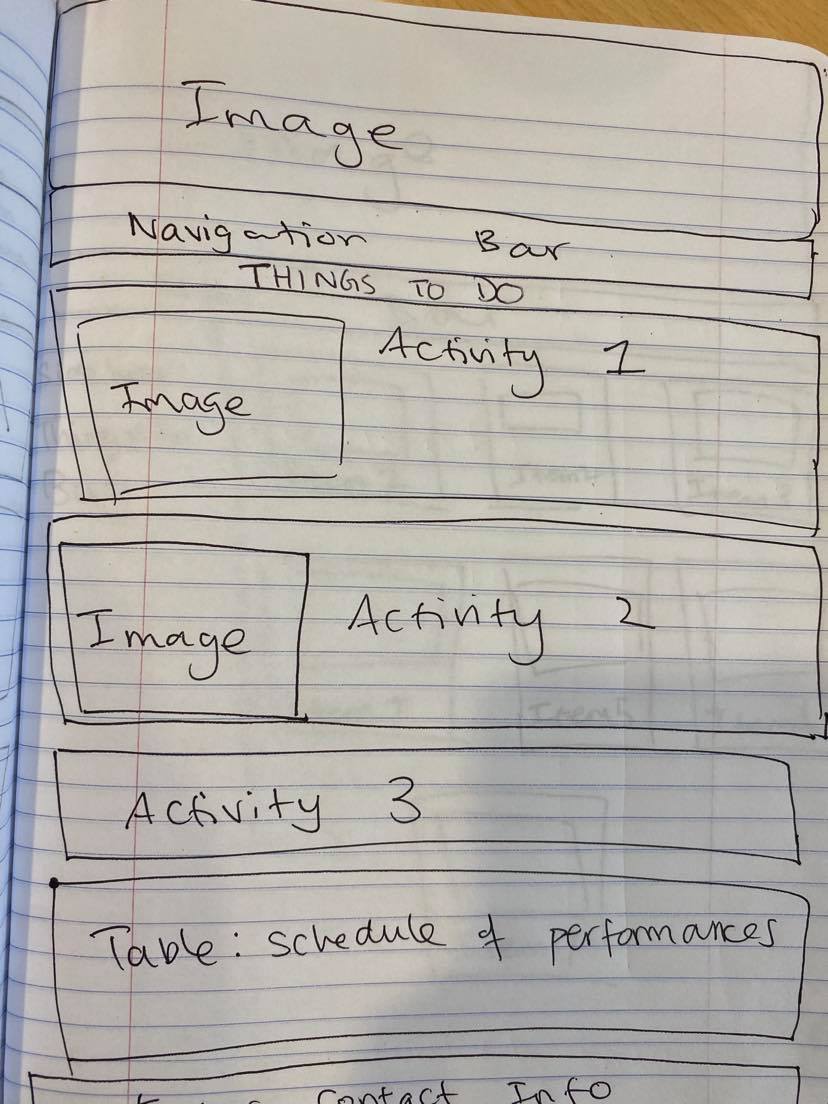 Image
Navigation Bar
THINGS TO DO
Activity 1
Image
Activity 2
Image
Activity 3
Table: schedule of performances
Contact Info